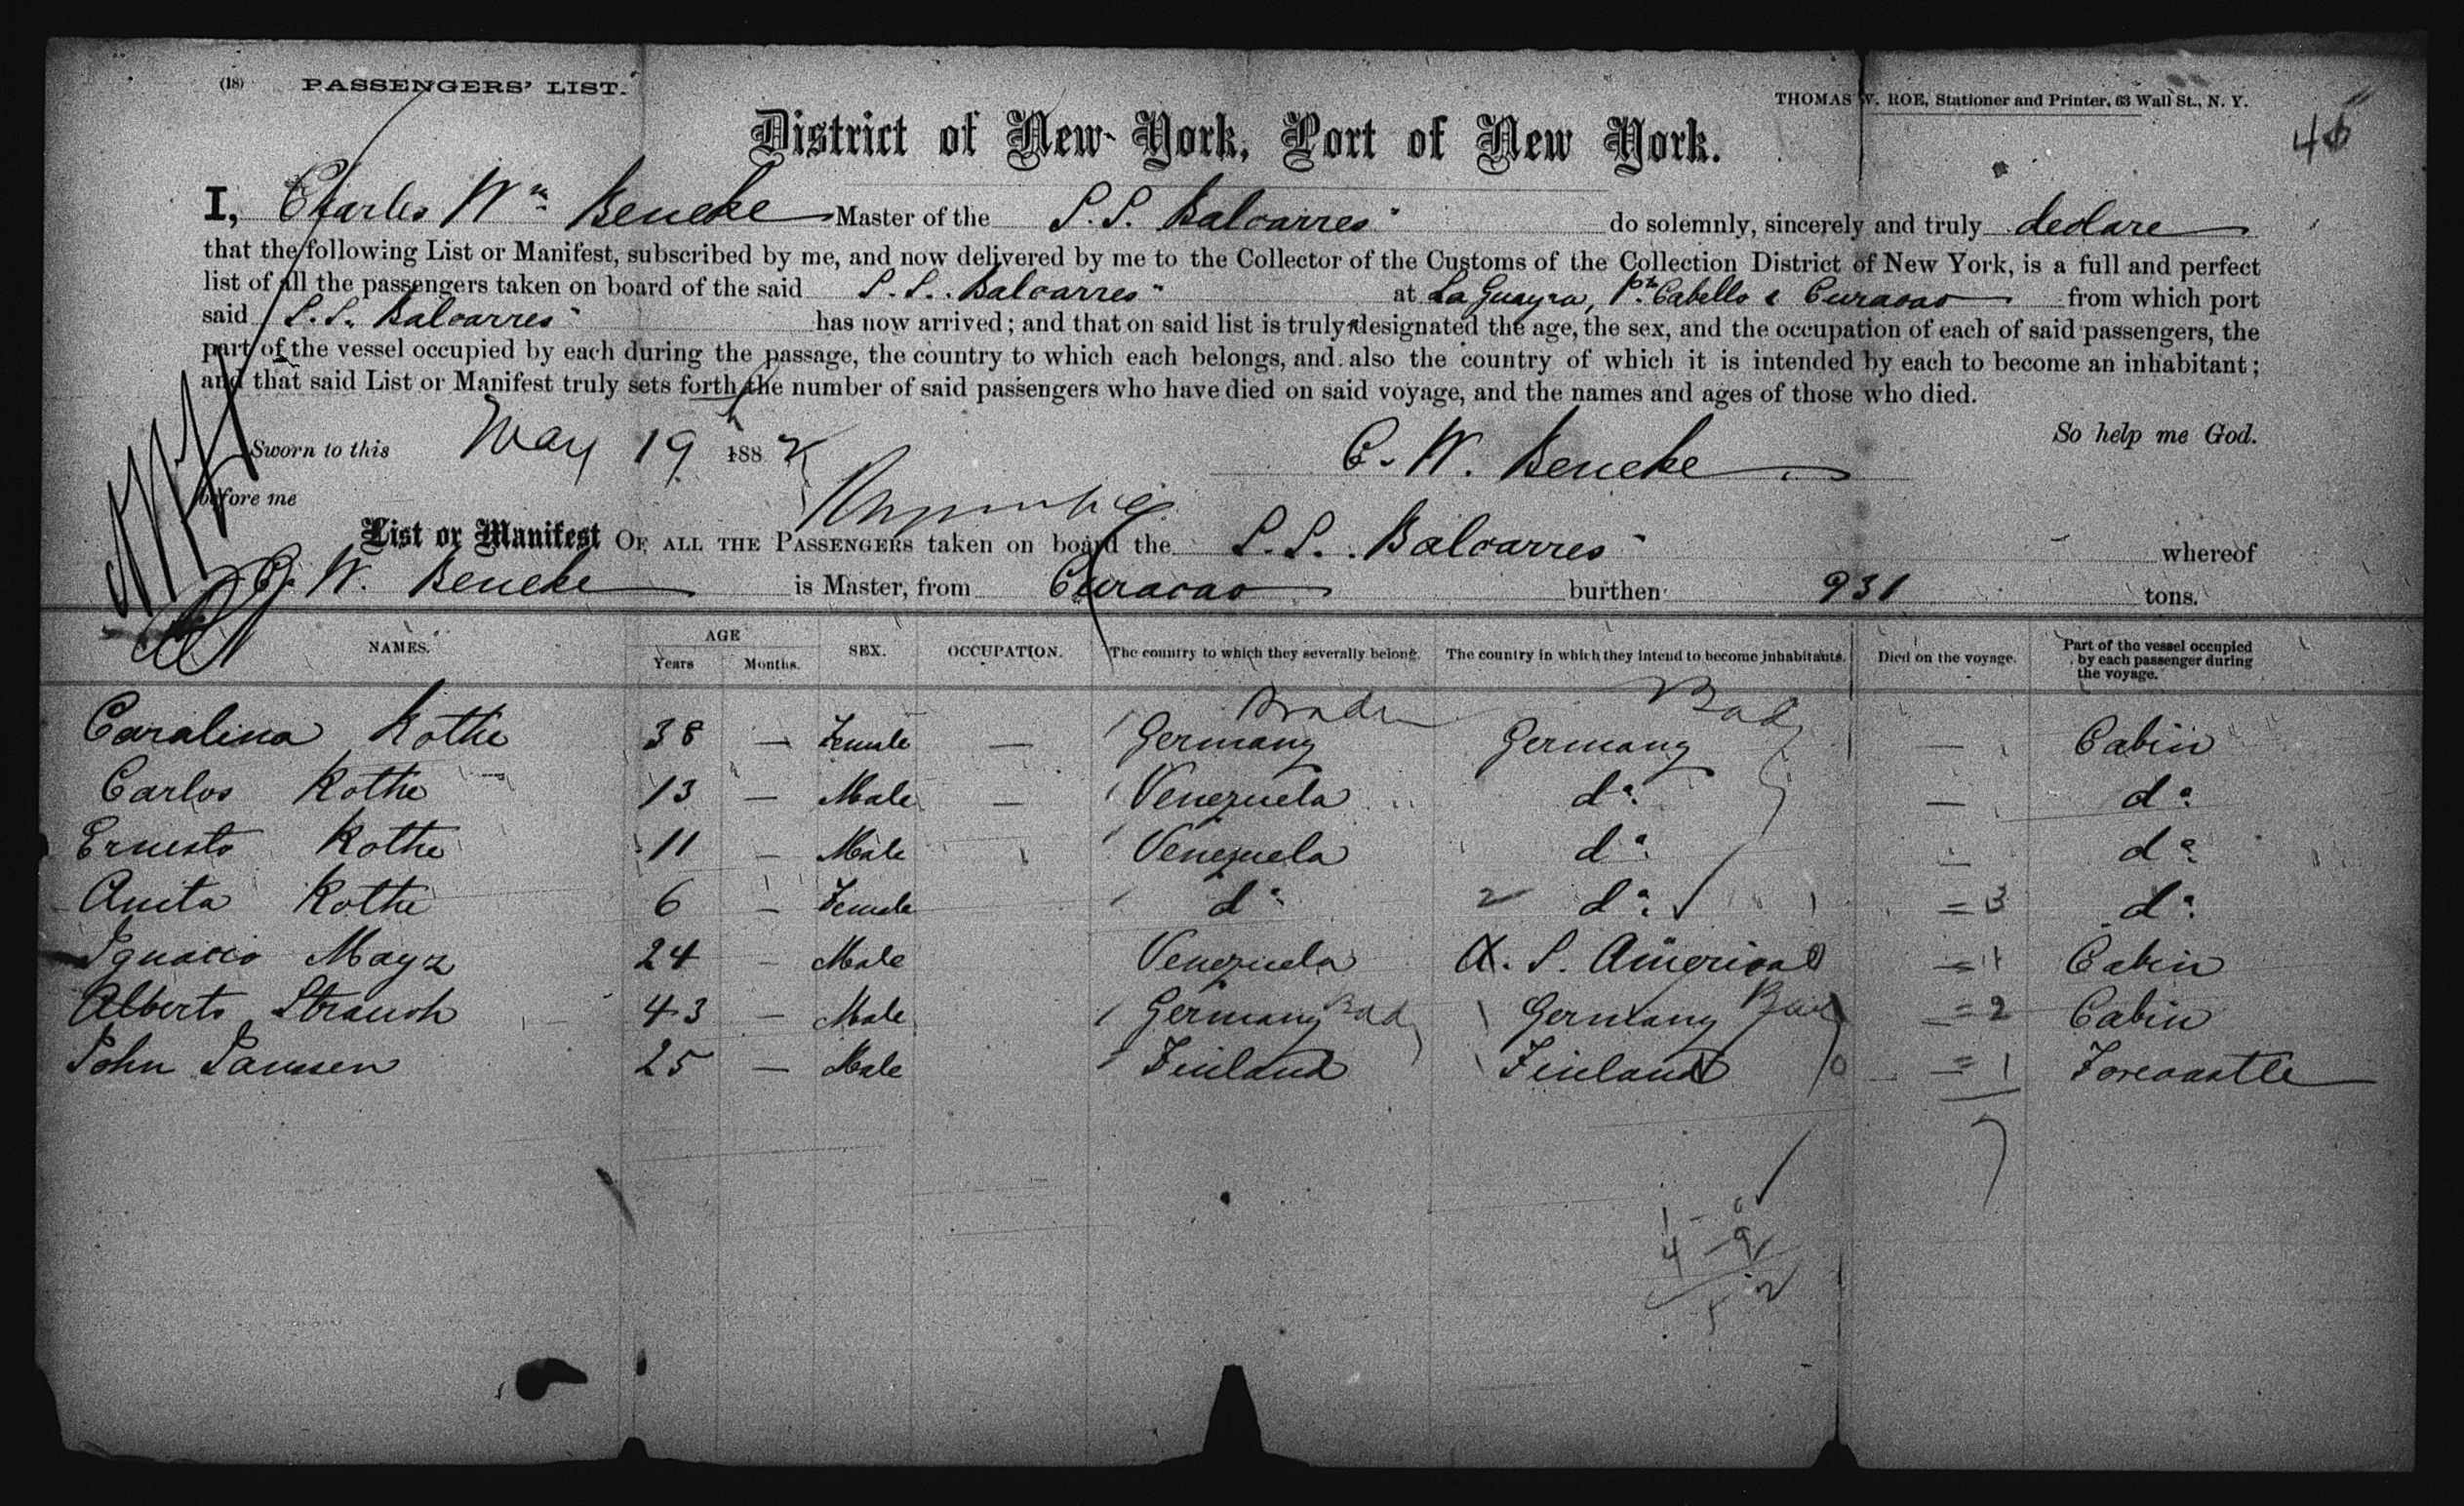 (18) PASSENGERS' LIST.
THOMAS W. ROE, Stationer and Printer, 63 Wall St., N. Y.
District of New-York, Port of New York.
I, Charles Wm Beneke Master of the S.S. Balcarres" do solemnly, sincerely and truly declare
that the following List or Manifest, subscribed by me, and now delivered by me to the Collector of the Customs of the Collection District of New York, is a full and perfect
list of all the passengers taken on board of the said S.S. Balcarres" at La Guayra, Pto Cabello & Curacao from which port
said S.S. Balcarres" has now arrived; and that on said list is truly designated the age, the sex, and the occupation of each of said passengers, the
part of the vessel occupied by each during the passage, the country to which each belongs, and also the country of which it is intended by each to become an inhabitant;
and that said List or Manifest truly sets forth the number of said passengers who have died on said voyage, and the names and ages of those who died.
So help me God.
Sworn to this May 19 1882 C. W. Beneke
before me
List or Manifest OF ALL THE PASSENGERS taken on board the S.S. Balcarres" whereof
C. W. Beneke is Master, from Curacao burthen 931 tons.
NAMES. AGE Years Months. SEX. OCCUPATION. The country to which they severally belong. The country in which they intend to become inhabitants. Died on the voyage. Part of the vessel occupied by each passenger during the voyage.
Caralina Rothe 38 — Female — Germany Germany — Cabin
Carlos Rothe 13 — Male — Venezuela do. — do.
Ernesto Rothe 11 — Male Venezuela do. — do.
Anita Rothe 6 — Female do. 2 do. = 3 do.
Ignacio Mayz 24 — Male Venezuela U. S. America = 1 Cabin
Alberto Strauch 43 — Male Germany Bad Germany = 2 Cabin
John Janssen 25 — Male Finland Finland 0 = 1 Forecastle
7